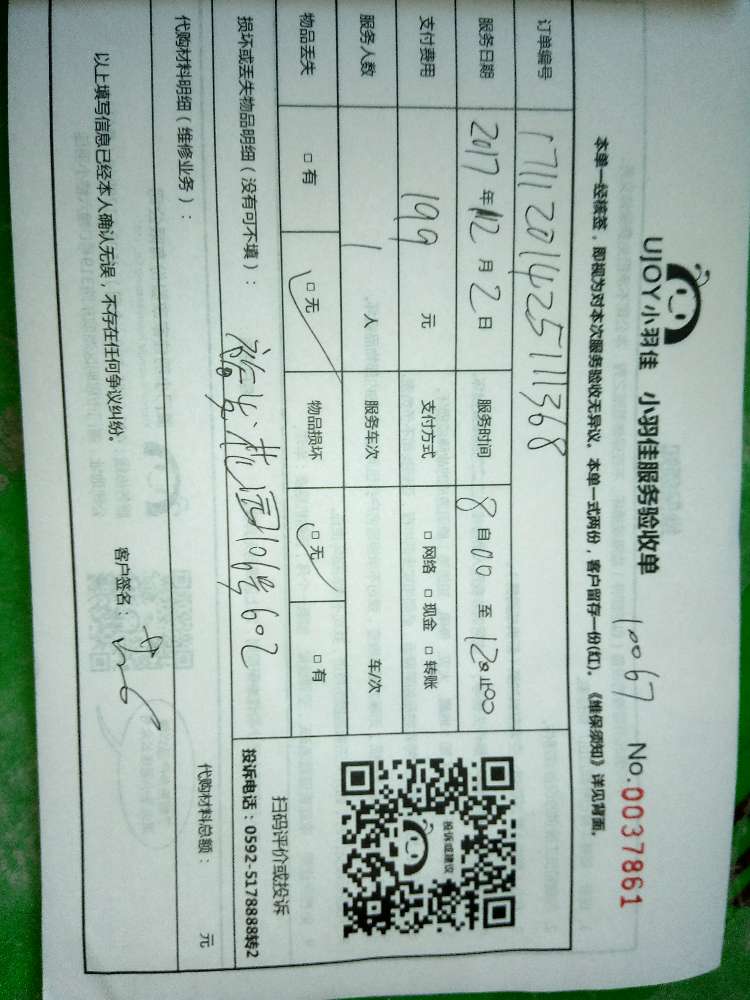 UJOY小羽佳 小羽佳服务验收单 10067 No.0037861
本单一经核签，即视为对本次服务验收无异议。本单一式两份，客户留存一份(红)。《维保须知》详见背面。
订单编号 171120142511368
服务日期 2017 年 12 月 2 日 服务时间 8 自 00 至 12 止 00
支付费用 199 元 支付方式 □ 网络 □ 现金 □ 转账
服务人数 1 人 服务车次 车/次
物品丢失 □ 有 □ 无 物品损坏 □ 无 □ 有
投诉或建议
扫码评价或投诉
投诉电话：0592-5178888转2
损坏或丢失物品明细（没有可不填）：
花园106号602
代购材料明细（维修业务）： 代购材料总额： 元
以上填写信息已经本人确认无误，不存在任何争议纠纷。 客户签名：